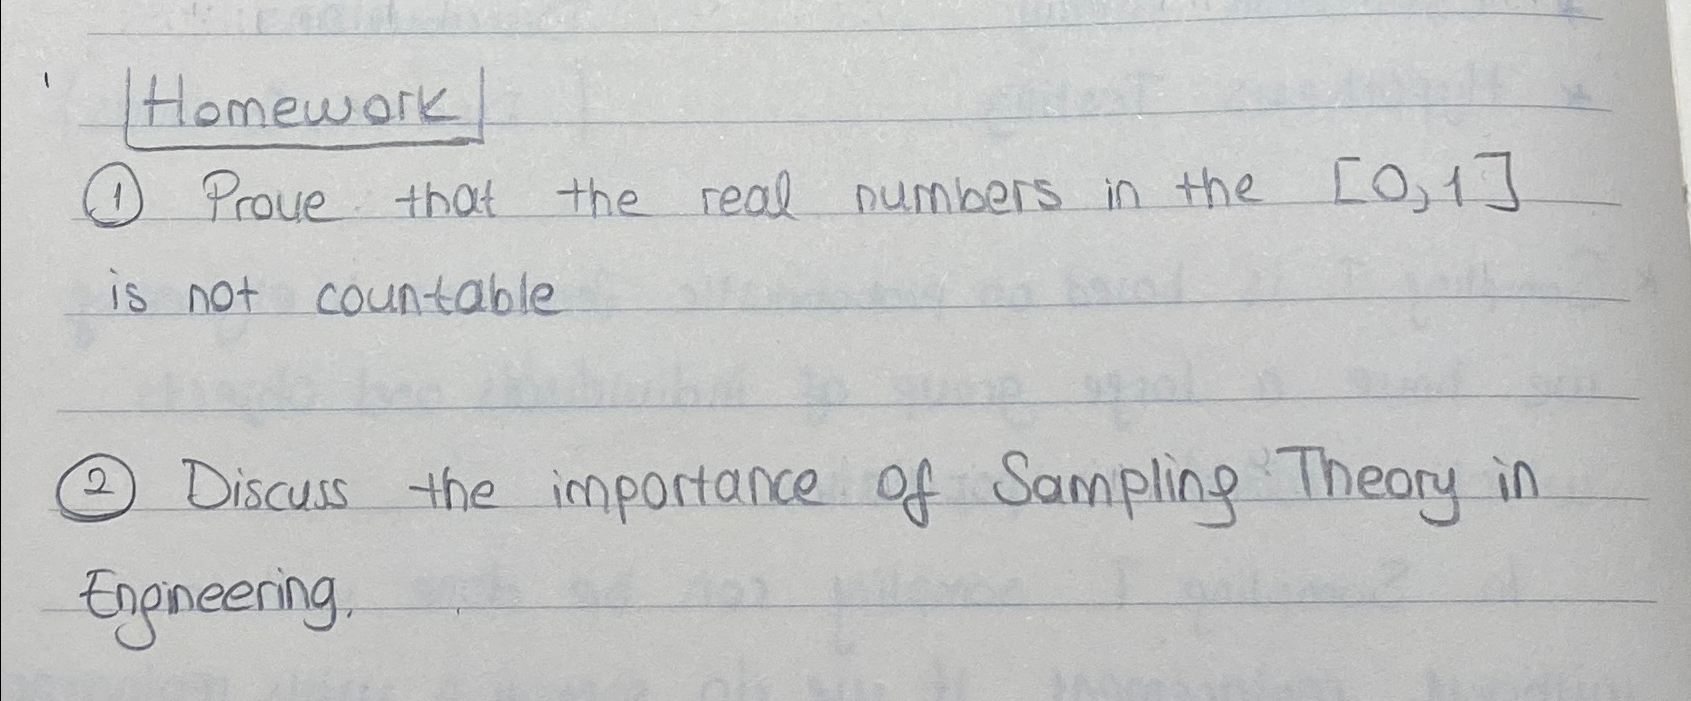 Homework
① Prove that the real numbers in the [0,1]
is not countable
② Discuss the importance of Sampling Theory in
Engineering.